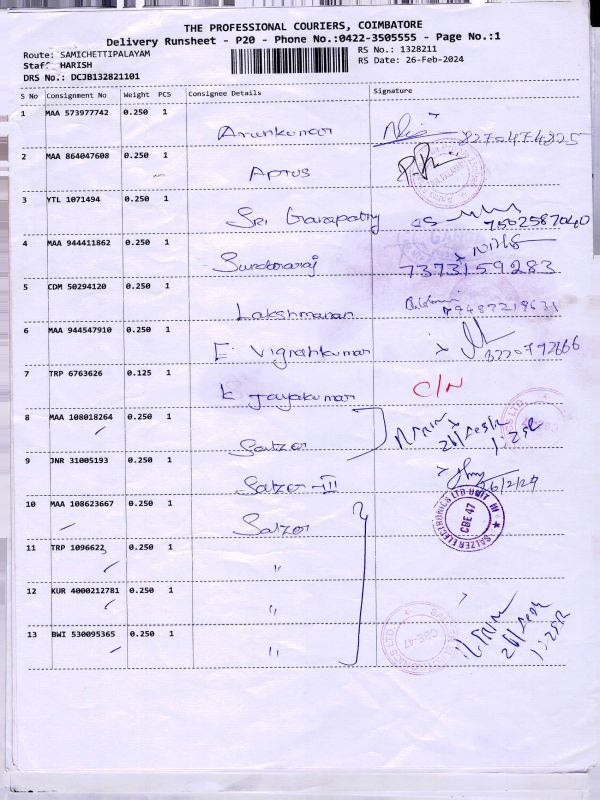 THE PROFESSIONAL COURIERS, COIMBATORE
Delivery Runsheet - P20 - Phone No.:0422-3505555 - Page No.:1
Route: SAMICHETTIPALAYAM
RS No.: 1328211
Staff HARISH
RS Date: 26-Feb-2024
DRS No.: DCJB132821101
S No Consignment No Weight PCS Consignee Details Signature
1 MAA 573977742 0.250 1 Arunkumar 8270474825
2 MAA 864047608 0.250 1 Aptus
3 YTL 1071494 0.250 1 Sri Ganapathy 7502587040
4 MAA 944411862 0.250 1 7373159283
5 CDM 50294120 0.250 1 Lakshmanan 9487219631
6 MAA 944547910 0.250 1 E. Vigneshkumar
7 TRP 6763626 0.125 1 K Jayakumar C/N
8 MAA 108018264 0.250 1 Salzer
9 JNR 31005193 0.250 1 Salzer -III 26/2/24
10 MAA 108623667 0.250 1 Salzer
SALZER ELECTRONICS LTD UNIT III
CBE 47
11 TRP 1096622 0.250 1 "
12 KUR 4000212781 0.250 1 "
13 BWI 530095365 0.250 1 "
CBE-47